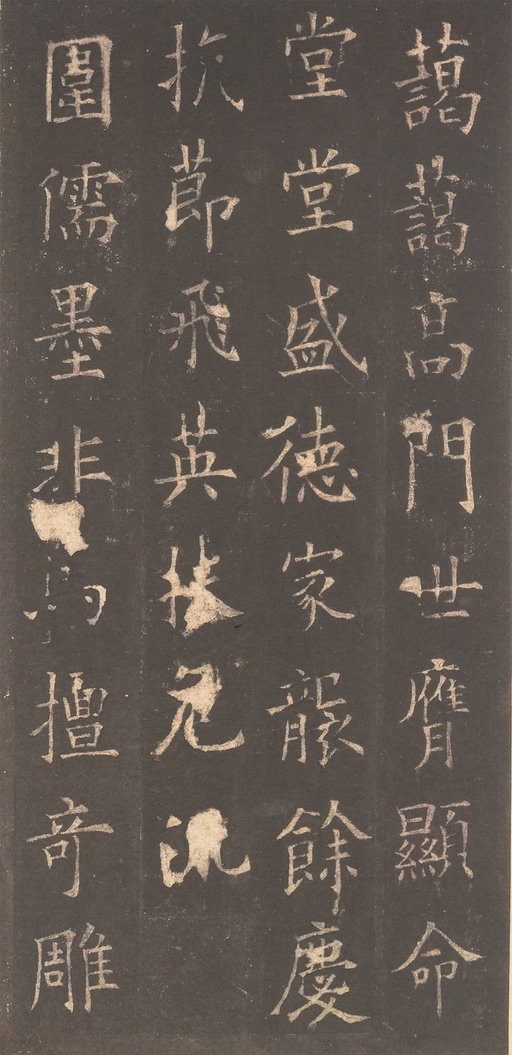 藹藹高門世膺顯命
堂堂盛德家襲餘慶
抗莭飛英危
圍儒墨非擅竒雕